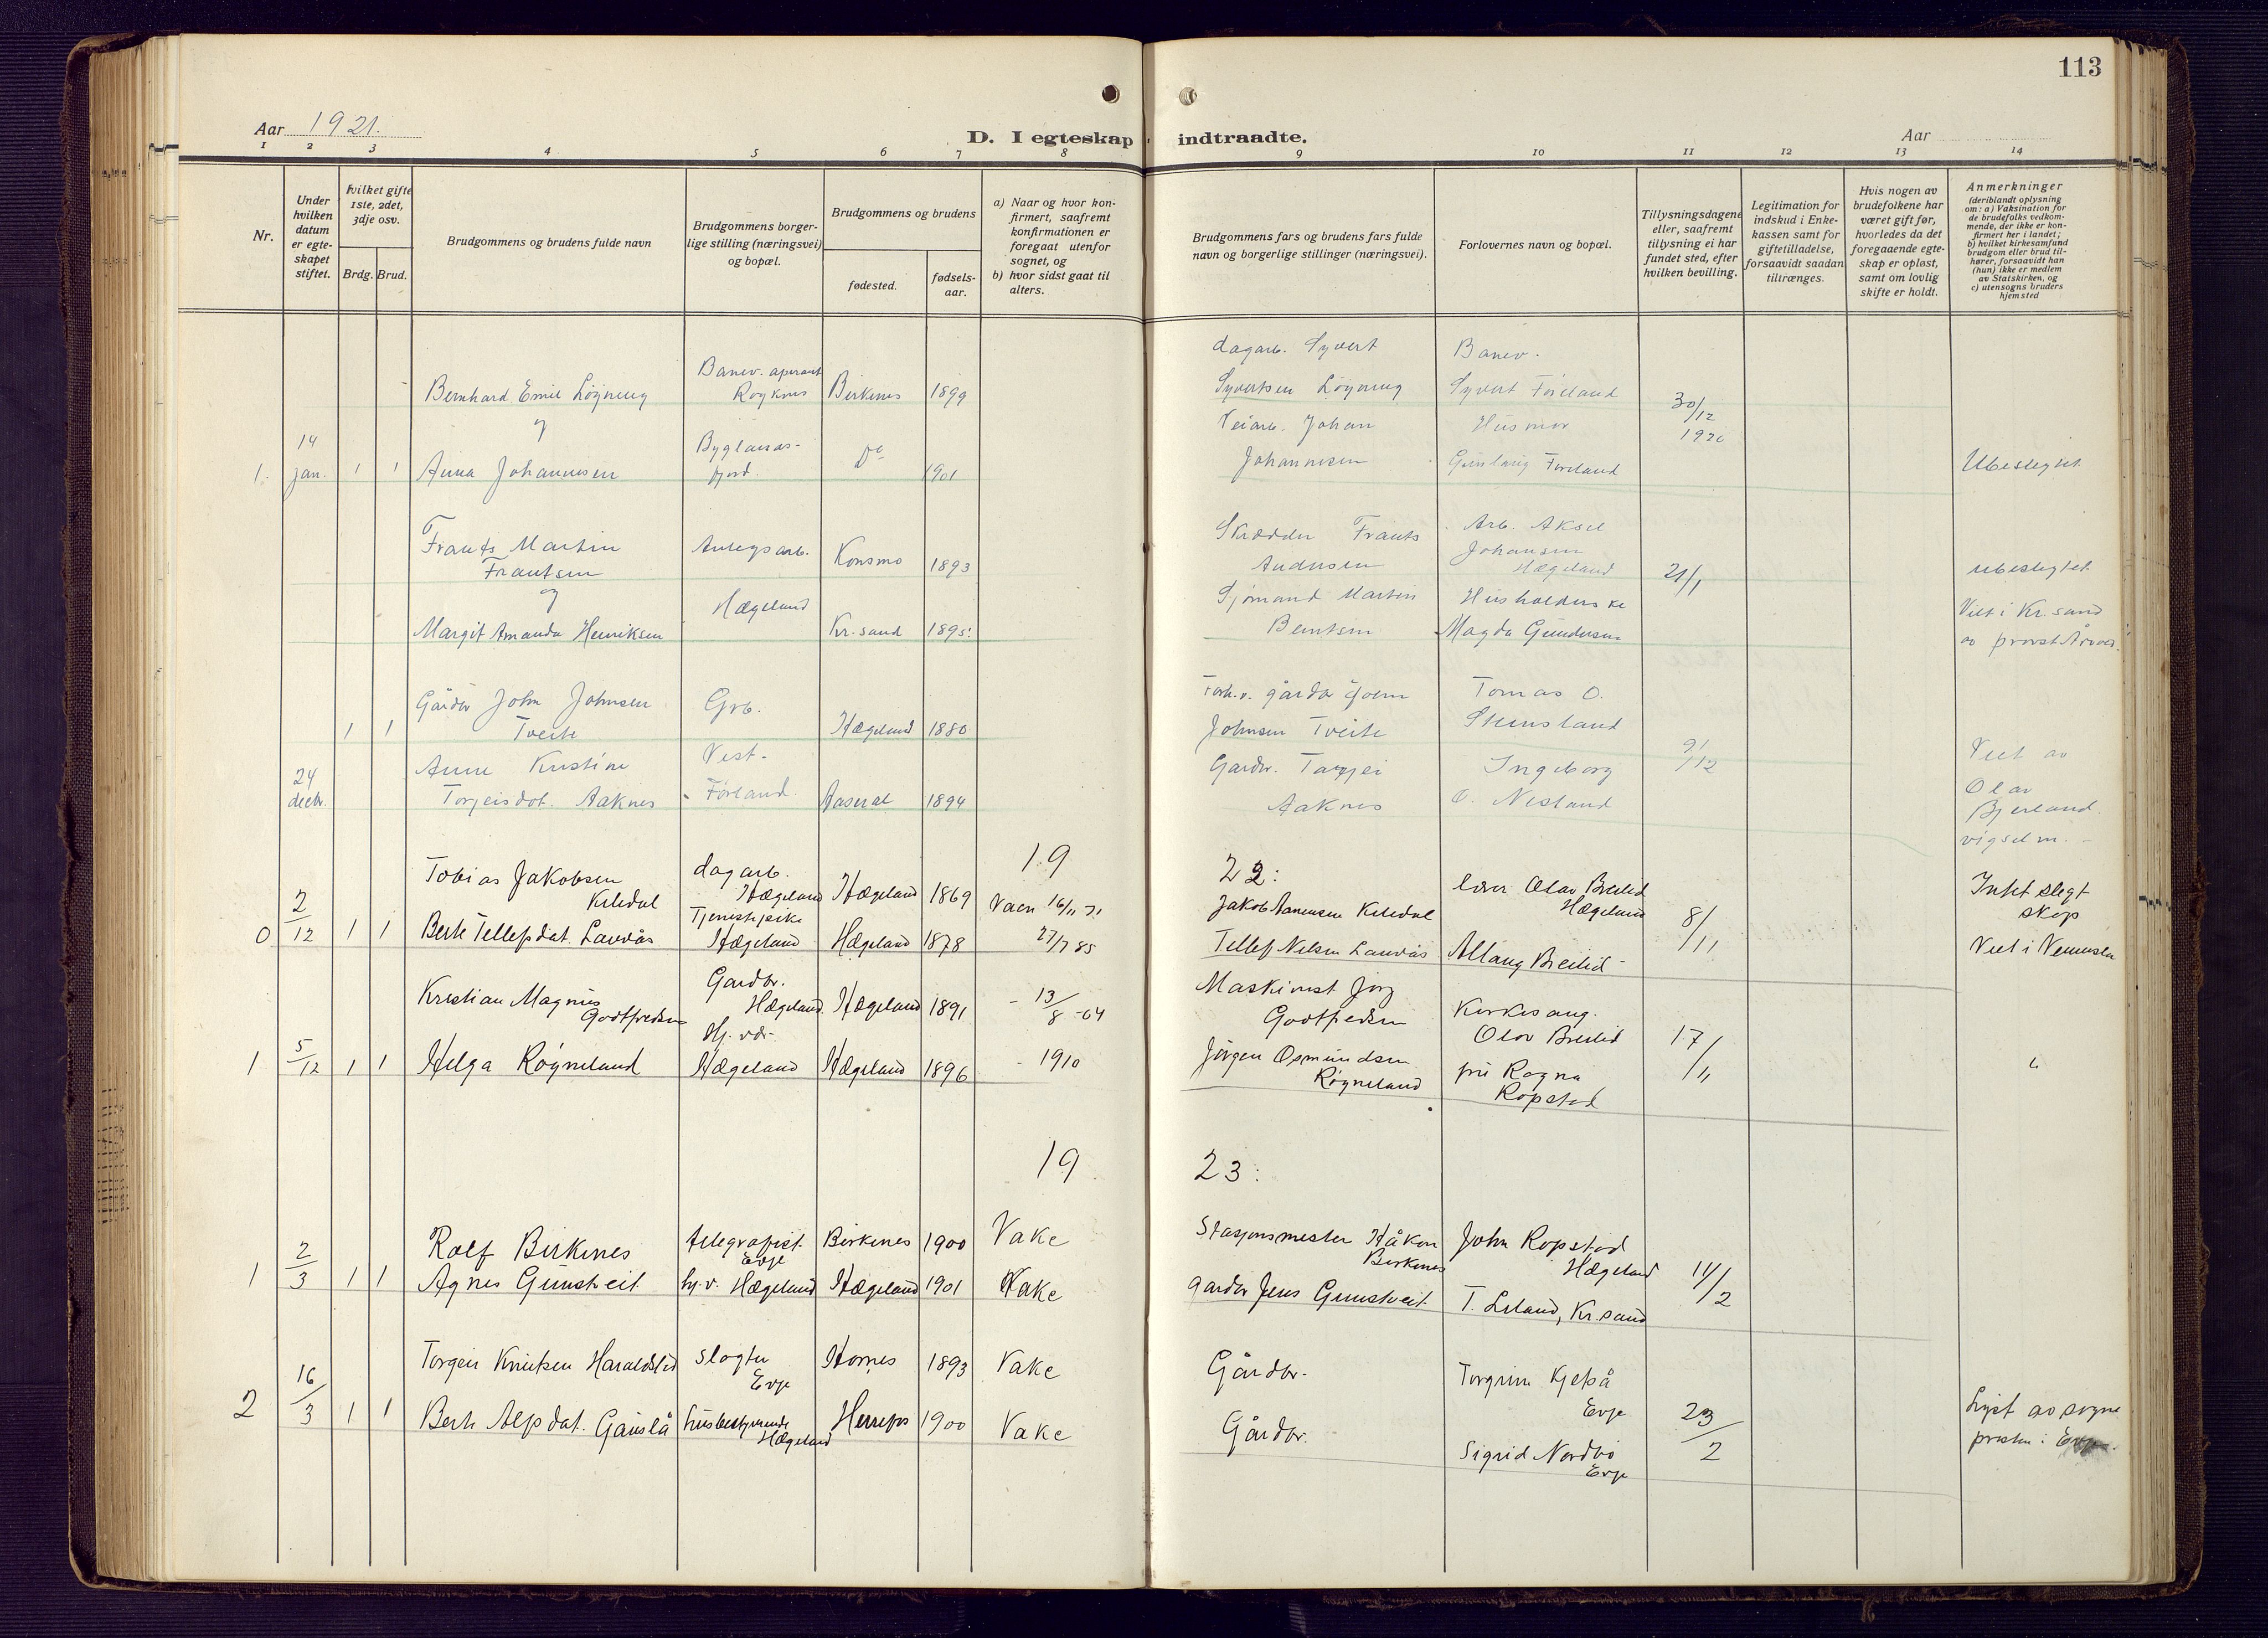 113
Aar 1921.
D. I egteskap indtraadte.
Aar
1 2 3 4 5 6 7 8 9 10 11 12 13 14
Nr.
Under
hvilken
datum
er egte-
skapet
stiftet.
hvilket gifte
1ste, 2det,
3dje osv.
Brdg. Brud.
Brudgommens og brudens fulde navn
Brudgommens borger-
lige stilling (næringsvei)
og bopæl.
Brudgommens og brudens
fødested.
fødsels-
aar.
a) Naar og hvor kon-
firmert, saafremt
konfirmationen er
foregaat utenfor
sognet, og
b) hvor sidst gaat til
alters.
Brudgommens fars og brudens fars fulde
navn og borgerlige stillinger (næringsvei).
Forlovernes navn og bopæl.
Tillysningsdagene
eller, saafremt
tillysning ei har
fundet sted, efter
hvilken bevilling.
Legitimation for
indskud i Enke-
kassen samt for
giftetilladelse,
forsaavidt saadan
tiltrænges.
Hvis nogen av
brudefolkene har
været gift før,
hvorledes da det
foregaaende egte-
skap er opløst,
samt om lovlig
skifte er holdt.
Anmerkninger
(deriblandt oplysning
om: a) Vaksination for
de brudefolks vedkom-
mende, der ikke er kon-
firmert her i landet;
b) hvilket kirkesamfund
brudgom eller brud til-
hører, forsaavidt han
(hun) ikke er medlem
av Statskirken, og
c) utensogns bruders
hjemsted
1. 14 jan. 1 1
Bernhard Emil Løgning
og
Anna Johannesen
Banev. aperant
Byglands-
fjord.
Birkenes 1899
Do 1901
dagarb. Syvert
Syvertsen Løgning
Veiarb. Johan
Johannesen
Banev.
Syvert Føreland
Husmor
Gunlaug Føreland
30/12
1920
Ubeslegtet
Frants Martin
Frantsen
og
Margit Amanda Henriksen
Anlegsarb.
Hægeland
Konsmo 1893
Kr.sand 1895.
Skrædder Frants
Andersen
Sjømand Martin
Berntsen
Arb. Aksel
Johansen
Hægeland
Husholderske
Magda Gundersen
21/1
ubeslegtet
Viet i Kr.sand
av provst
24 decbr. 1 1
Gårdbr John Johnsen
Tveite
Anne Kristine
Torjeisdot. Aaknes
Grb.
Vest-
Førland.
Hægeland 1880
Aaseral 1894
gårdbr
Johnsen Tveite
Gardbr. Targjei
Aaknes
Tomas O.
Stensland
Ingeborg
O. Nesland
9/12
Viet av
Olav
Bjerland
vigselm.
19 22:
0 2/12 1 1
Tobias Jakobsen
Kiledal
Berte Tellefsdat. Lauvås
dagarb.
Hægeland
Tjenestepike
Hægeland
Hægeland 1869
Hægeland 1878
27/7 85
Jakob Aanensen Kiledal
Tellef Nilsen Lauvås
lærer Olav Breilid
Hægeland
Aslaug Breilid
8/11
Intet slegt
skap
Viet i Vennesla
1 5/12 1 1
Kristian Magnus
Godtfredsen
Helga Røyneland
Gardbr.
Hægeland.
Hj. vær
Hægeland
Hægeland 1891
Hægeland 1896
- 13/8 -04
- 1910
Maskinist Jørg
Godtfredsen
Jørgen Osmundsen
Røyneland
Kirkesang.
Olav Breilid
fru Ragna
Ropstad
17/11
"
19 23:
1 2/3 1 1
Rolf Birkenes
Agnes Gunstveit
telegrafist
Evje
hj.v. Hægeland
Birkenes 1900
Hægeland 1901
Vake
Vake
Stasjonsmester Håkon
Birkenes
Gardbr Jens Gunstveit
John Ropstad
Hægeland
T. Leland, Kr.sand
14/2
2 16/3 1 1
Torgeir Knutsen Haraldslid
Berte Alfsdat. Gauslå
slagter
Evje
husbestyrende
Hægeland
Hornes 1893
Herrefos 1900
Vake
Vake
Gårdbr.
Gårdbr.
Torgrim Kjetså
Evje
Sigrid Nordbø
Evje
23/2
Lyst av sogne
presten i Evje.